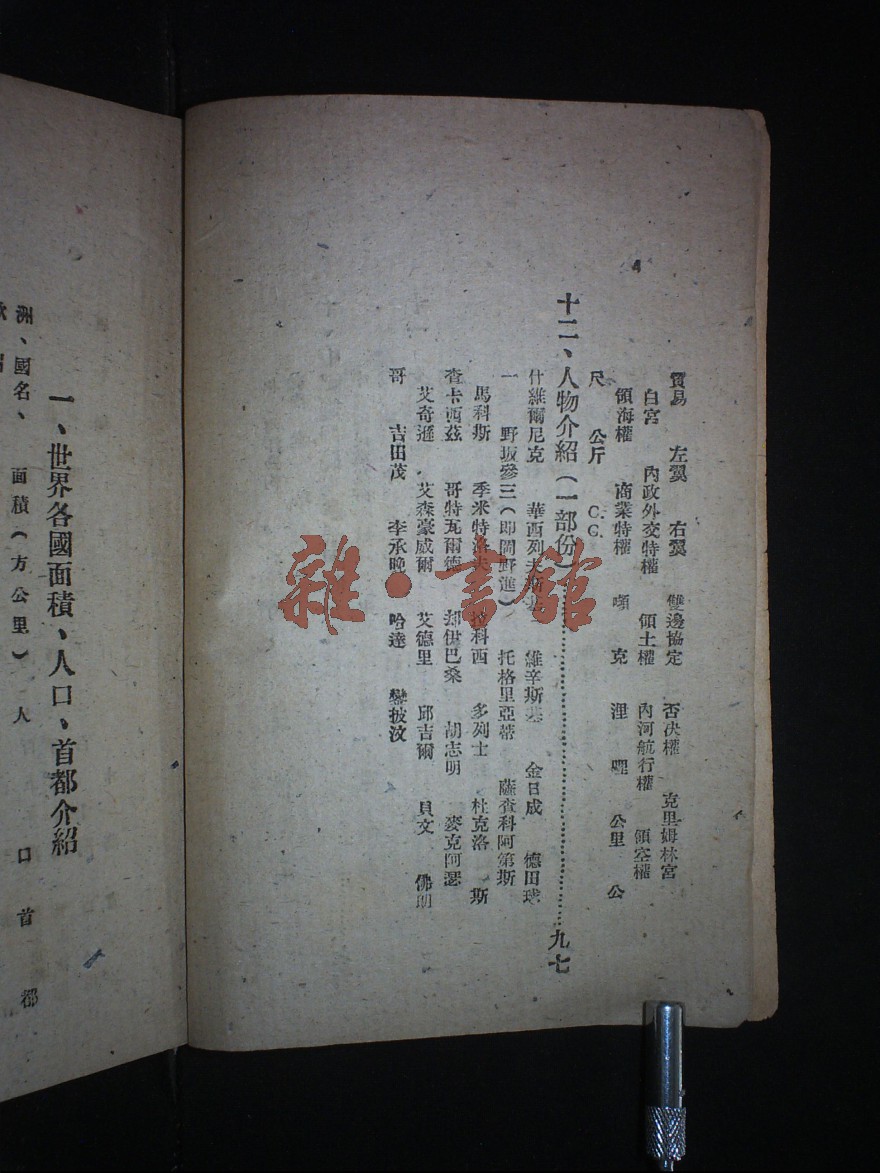 4
貿易 左翼 右翼 雙邊協定 否決權 克里姆林宮
白宮 內政外交特權 領土權 內河航行權 領空權
領海權 商業特權 噸 克 浬 哩 公里 公
尺 公斤 C.C.
十二、人物介紹(一部份)……九七
什維爾尼克 華西列夫斯基 維辛斯基 金日成 德田球
一 野坂參三(即岡野進) 托格里亞蒂 薩查科阿第斯
馬科斯 季米特洛夫 科西 多列士 杜克洛 斯
查卡西茲 哥特瓦爾德 伊巴桑 胡志明 麥克阿瑟
艾奇遜 艾森豪威爾 艾德里 邱吉爾 貝文 佛朗
哥 吉田茂 李承晚 哈達 鑾披汶
一、世界各國面積、人口、首都介紹
洲、國名、 面積(方公里) 人 口 首 都
雜·書館